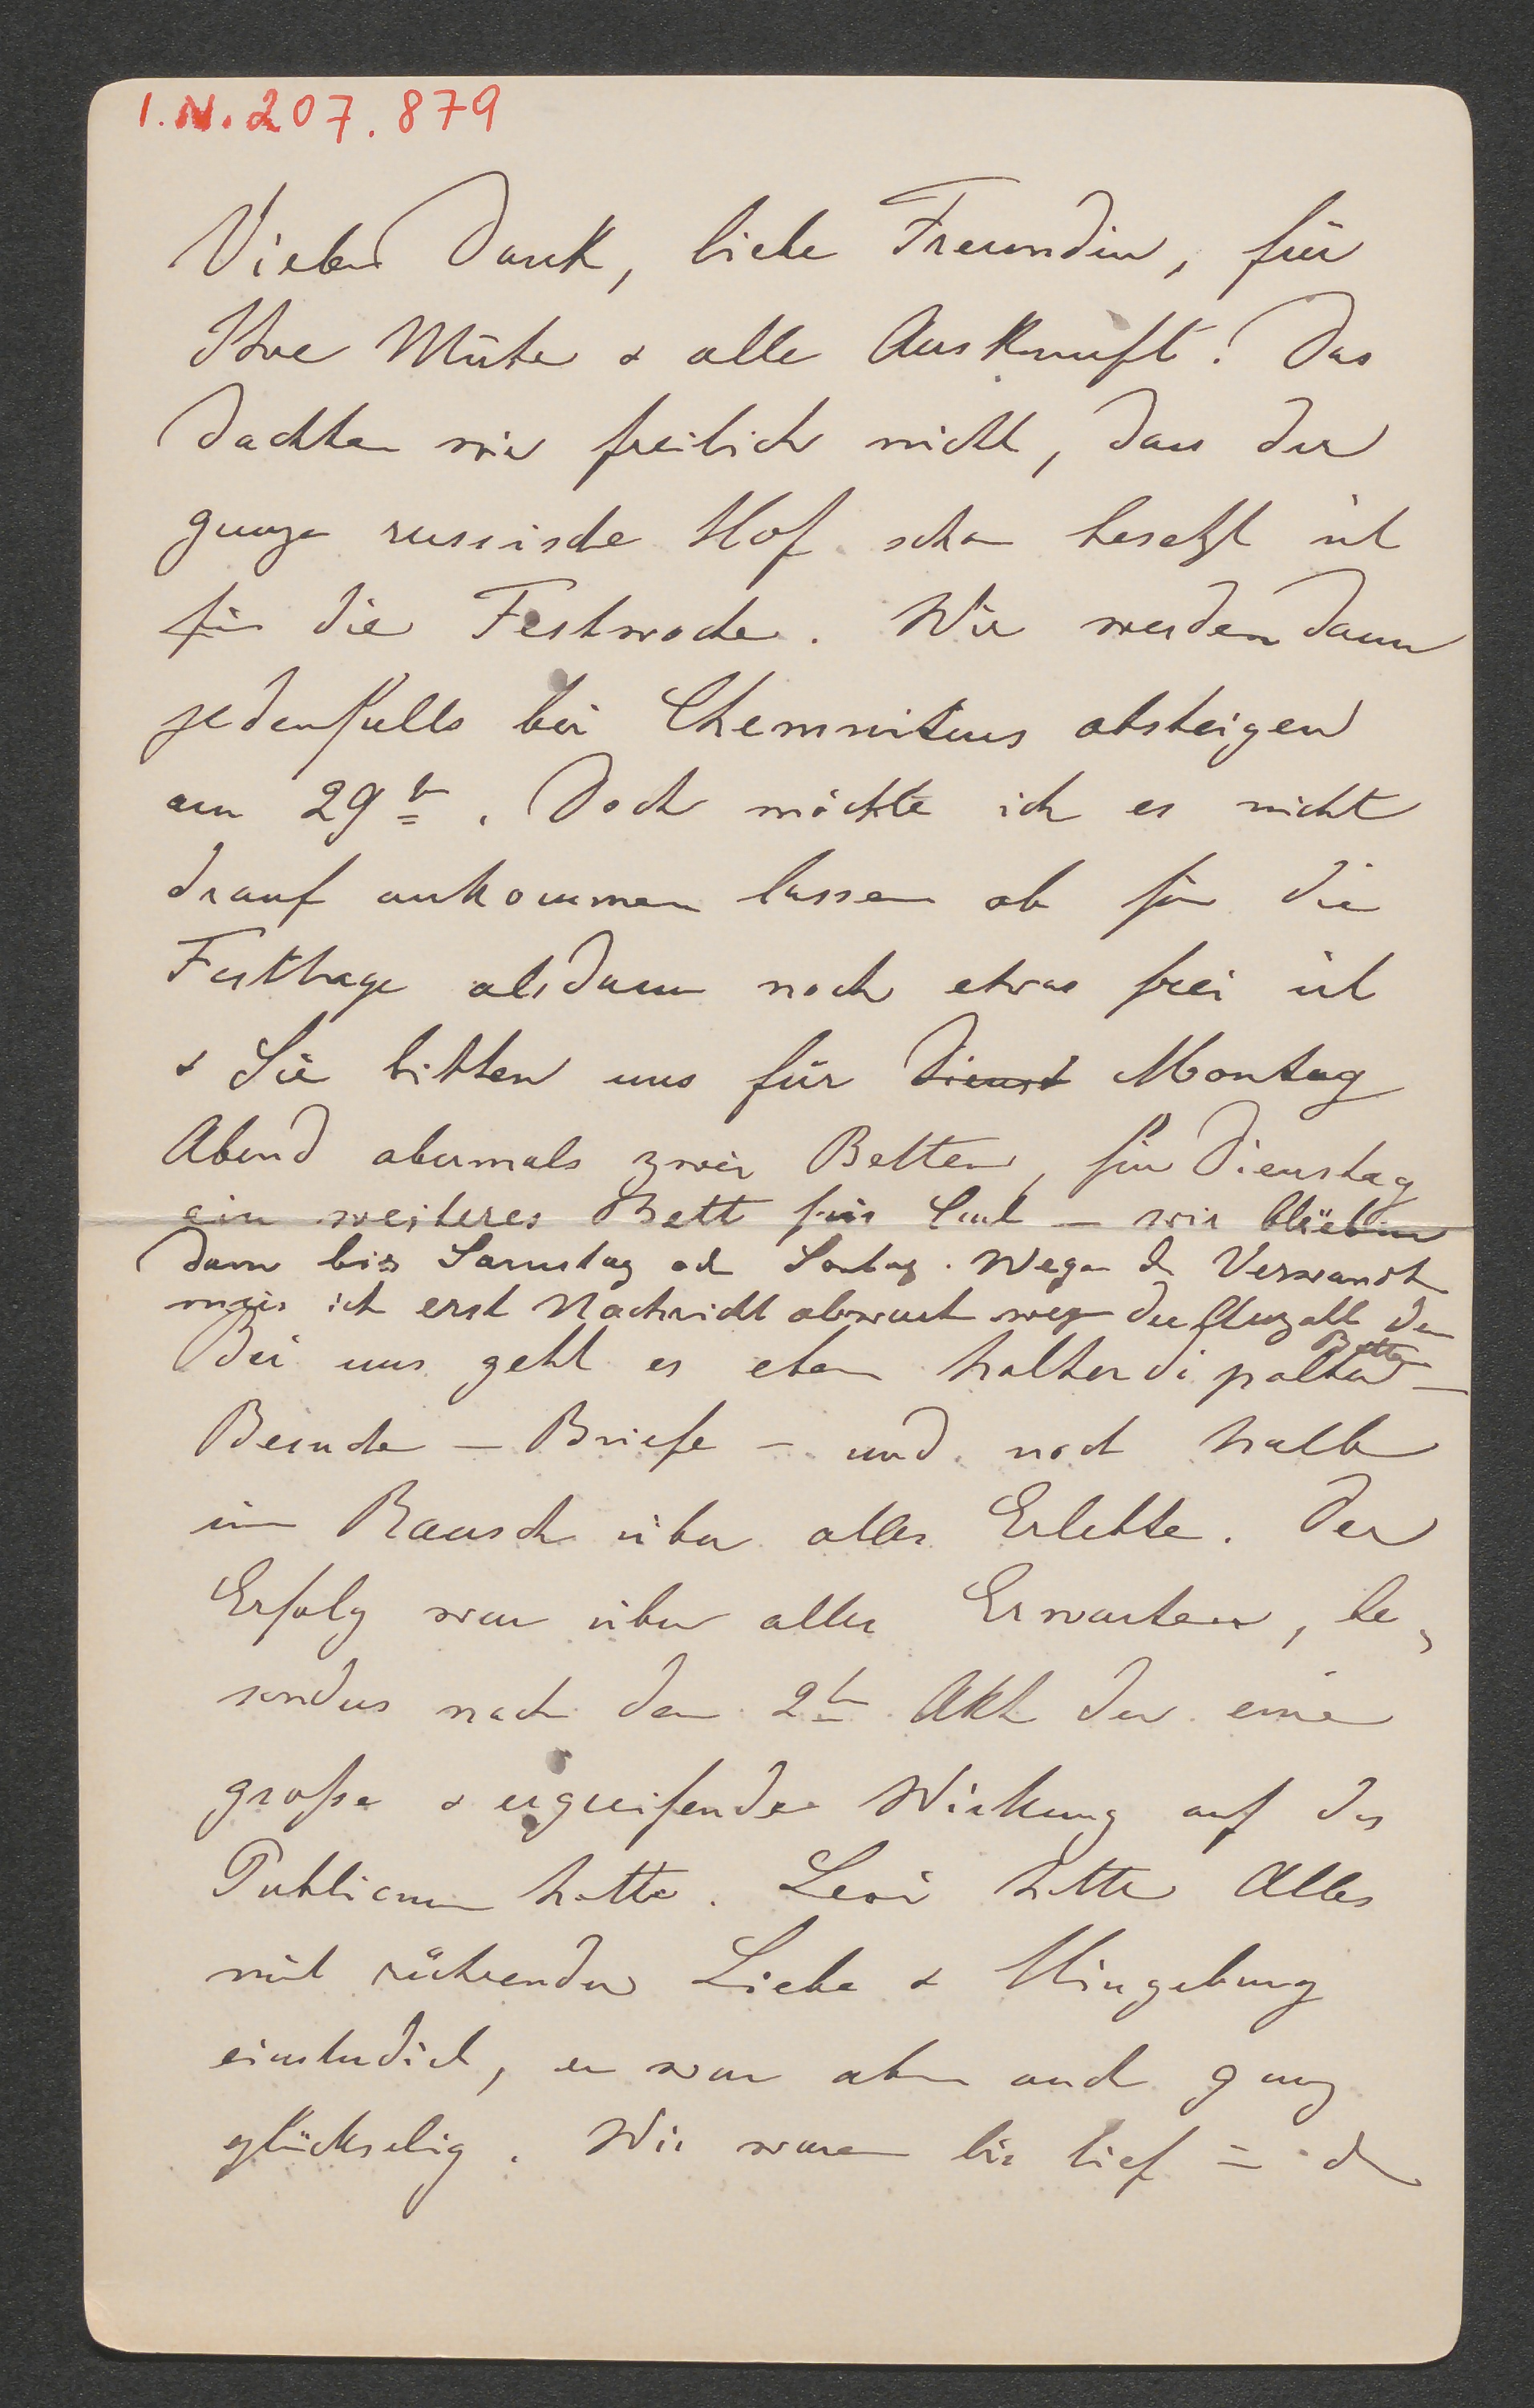 I.N. 207.879
Vielen Dank, liebe Freundin, für
Ihre Mühe & alle Auskunft! Das
dachten wir freilich nicht, dass der
ganze russische Hof schon besetzt ist
für die Festwoche. Wir werden dann
jedenfalls bei Chemnitius absteigen
am 29ten. Doch möchte ich es nicht
drauf ankommen lassen ob für die
Festtage alsdann noch etwas frei ist
& Sie bitten uns für Dienst Montag
Abend abermals zwei Betten, für Dienstag
ein weiteres Bett für – wir blieben
dann bis Samstag od Sontag. Wegen d Verwandt
muss ich erst Nachricht abwarten wegen der Anzahl der
Betten
Bei uns geht es eben holterdipolter –
Besuche – Briefe – und noch halb
im Rausch über alles Erlebte. Der
Erfolg war über alles Erwarten, be,
sonders nach dem 2ten Akt der eine
große & ergreifende Wirkung auf das
Publicum hatte. Levi hatte Alles
mit rührender Liebe & Hingebung
einstudiert, er war aber auch ganz
glückselig. Wir waren bis tief in d